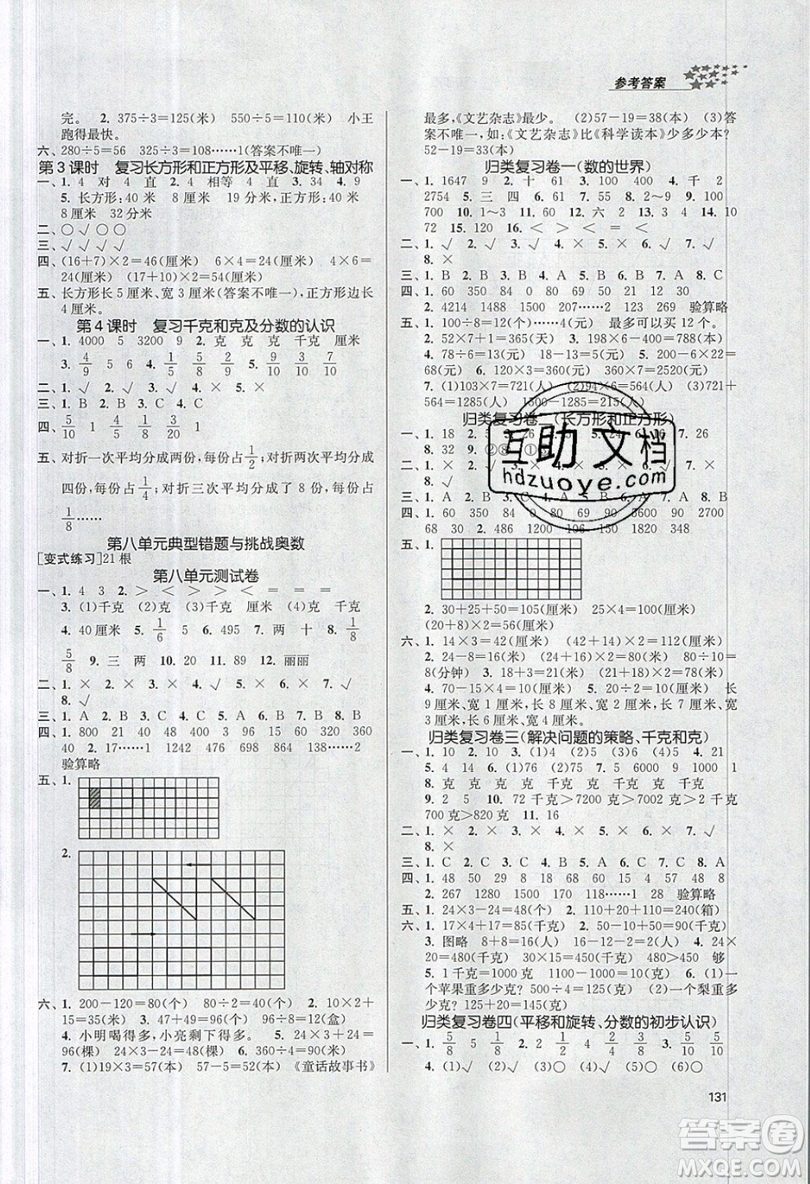 参考答案
完。 2. 375÷3=125(米) 550÷5=110(米) 小王
跑得最快。
六、280÷5=56 325÷3=108……1(答案不唯一)
第3课时 复习长方形和正方形及平移、旋转、轴对称
一、1. 4 对 4 直 2. 4 相等 4 直 3. 4 34 4. 9
5. 长方形:40 米 8 厘米 19 分米,正方形:40 米
8 厘米 32 分米
二、○ ○ ○ ○
三、√ √ √ √
四、(16+7)×2=46(厘米) 6×4=24(厘米) 4×6=
24(厘米) (17+10)×2=54(厘米)
五、长方形长 5 厘米、宽 3 厘米(答案不唯一),正方形边长
4 厘米。
第4课时 复习千克和克及分数的认识
一、1. 4000 5 3200 9 2. 克 克 克 千克 克
3. 4/9 5/9 4. 1/6 2/6 1/8 3/8
二、1. √ 2. √ 3. √ 4. × 5. × 6. √
三、1. B 2. B 3. C 4. C
四、5/10 1 5/8 1/6 7/20 0
五、对折一次平均分成两份,每份占1/2;对折两次平均分成
四份,每份占1/4;对折三次平均分成 8 份,每份占
1/8……
第八单元典型错题与挑战奥数
[变式练习]21 根
第八单元测试卷
一、1. 4 3 2. > > < > = < = >
3. (1)千克 (2)千克 克 厘米 (3)千克 千克
4. 40 厘米 5. 1/6 5/6 6. 495 7. 两 十 8. 3/8
5/8 9. 三 两 10. 20 11. 89 12. 丽丽
二、1. × 2. × 3. × 4. √ 5. × 6. × 7. √
8. √
三、1. A 2. B 3. C 4. B 5. C 6. B 7. A 8. A
四、1. 60 90 15 40 32 800 320 360
40 2. 27……2 1242 698 608 138……2
验算略
五、1.
2.
六、1. 200-120=80(个) 80÷8=10(个) 2. 10×2+
15=35(米) 3. 49+47=96(盒) 96÷8=12(盒)
4. 小明喝得多, 小亮剩下得多。 5. 24×3+24=
96(棵) 24×3-24=48(棵) 6. 360÷4=90(元)
7. (1)19×3=57(本) 57-5=52(本) 《童话故事书》
最多,《文艺杂志》最少。 (2)57-19=38(本) (3)答
案不唯一, 如:《文艺杂志》比《科学读本》少多少本?
52-19=33(本)
归类复习卷一(数的世界)
一、1. 1647 9 2. 十 61 3. 100 400 4. 千
2754 5. 三 四 6. 71 8. 2~9 9. 100
700 10. 1~3 11. 60 12. 六 2 13. 72
72 15. 120 16. < > < = > =
二、1. √ 2. √ 3. × 4. × 5. × 6. √ 7. √
8. ×
三、1. B 2. B 3. B 4. C 5. B 6. B 7. A 8. C
四、1. 60 350 84 69 50 21 30 1200
2. 4214 1488 1500 309 269 验算略
五、1. 100÷8=12(个)……4(元) 最多可以买 12 个。
2. 52×7+1=365(天) 3. 84÷6÷2=7(本)
4. 78÷6=13(元) 18-13=5(元) 5. 96÷8÷6=
2(个) 6. 120×3=360(米) 360÷2=180(米)
7. (1)103×7=721(人) (2)94×6=564(人) 721+
564=1285(人) 1500-1285=215(人)
归类复习卷二(长方形和正方形)
一、1. 18 2. 5 3. 26 5. 30 6. 36 7. 26
8. 32
二、1. × 2. × 5. × 6. √ 7. √ 8. ×
三、1. C 2. 5. A 6. A 7. A 8. B
四、1. 60 1000 9 15 90 1000
68 30 2. 4200 1286 1290 验算略
五、1.
2. 30+25+50=105(厘米) 25×4=100(厘米)
(20+8)×2=56(厘米)
六、1. 14×3=42(厘米) (42+14)×2=112(厘米)
2. 48-24=24(米) 24×4=96(米) 96÷12=
8(分钟) 3. 18+3=21(米) (21+18)×2=78(米)
4. 70-15×4=10(厘米) 5. 20÷2=10(厘米) 长
9 厘米、宽 1 厘米; 长 8 厘米、宽 2 厘米; 长 7 厘
米、宽 3 厘米; 长 6 厘米、宽 4 厘米
归类复习卷三(解决问题的策略、千克和克)
一、1. 10 2. 10 3. (1)4 (2)5 (3)6 (4)5 4. 21
5. 4 14 6. 6 20 7. (1)500 (2)20 (3)15
8. 克 克 千克 克 千克 克 克 千克
9. 2 5 10. 72 千克>7200 克>7002 克>7 千
克>820 克 11. 16
二、1. × 2. √ 3. × 4. × 5. √ 6. × 7. √
8. ×
三、1. C 2. C 3. A 4. A 5. B 6. B 7. C 8. C
四、1. 48 50 25 90 24 24 28 29
2. 267 1280 1510 115……4 28 验算略
五、1. 24×3-24=48(个) 2. 110×2+20=240(箱)
六、1. 17×4+17=85(本) 2. 50-10×4=10(千克)
3. 图略 8+8=16(人) 16-12=4(人) 4. 24×
20=480(千克) 30×15=450(千克) 480>450 够
5. (1)4×250=1000(克)=1千克 6. (1)一
个苹果重多少克? 500÷4=125(克) (2)一个梨重多
少克? 125+20=145(克)
归类复习卷四(平移和旋转、分数的初步认识)
4. (1)○ (2)□ (3)□ (4)○
131
互助文档
hdzuoye.com
答案圈
MXQE.COM